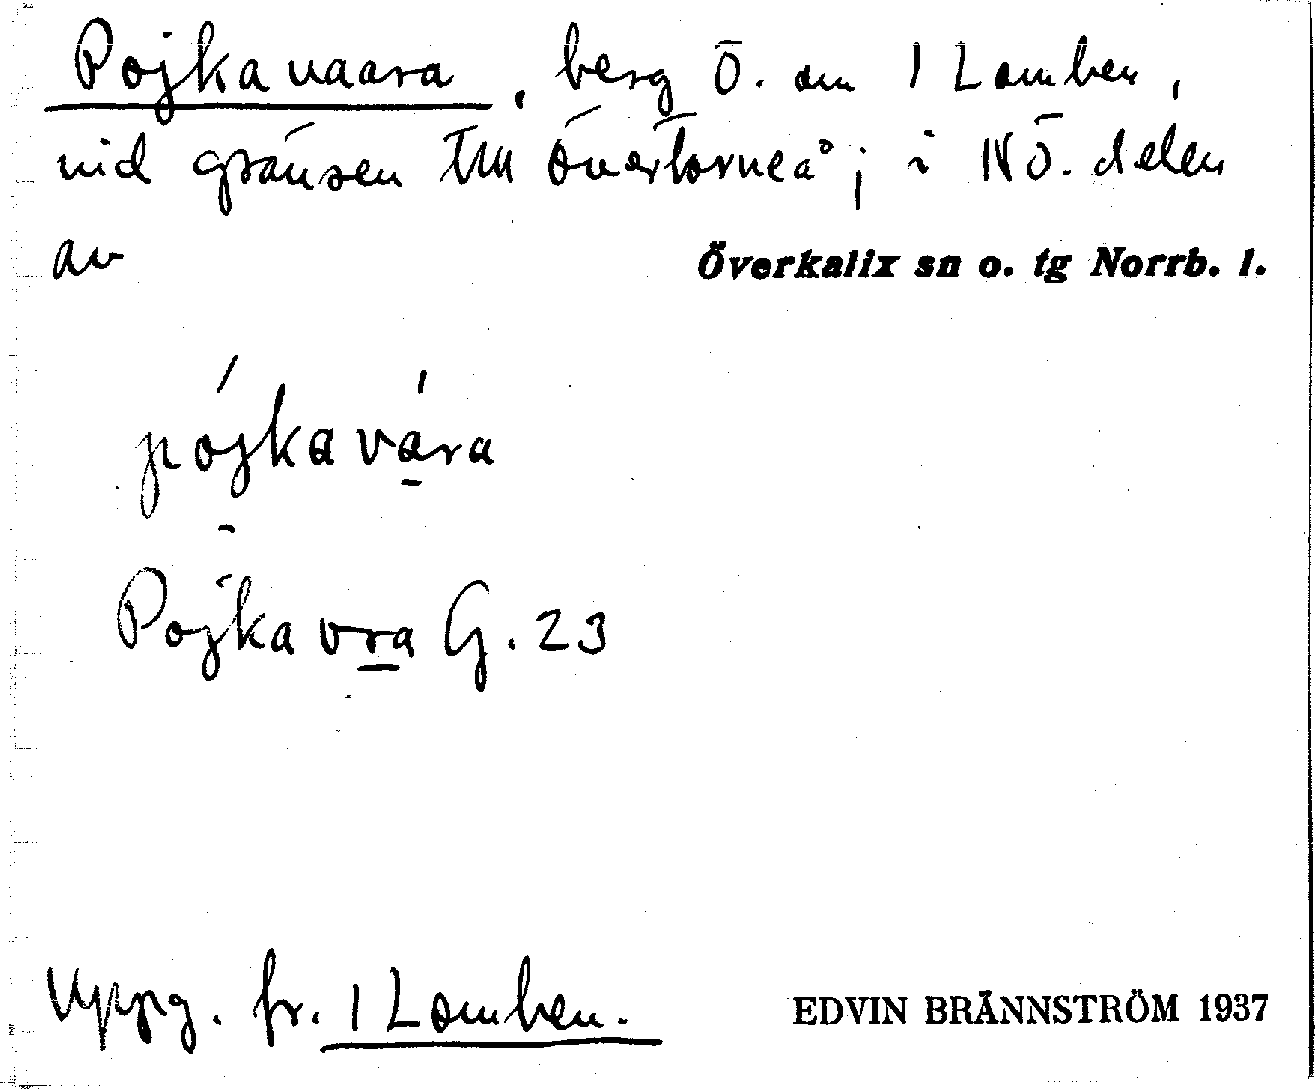 Pojkavaara, berg Ö. om 1 Lomben,
vid gränsen till Övertorneå; i NÖ. delen
av Överkalix sn o. tg Norrb. l.
pójkavára
Pojkavra G. 23
Uppg. fr. 1 Lomben.
EDVIN BRÄNNSTRÖM 1937